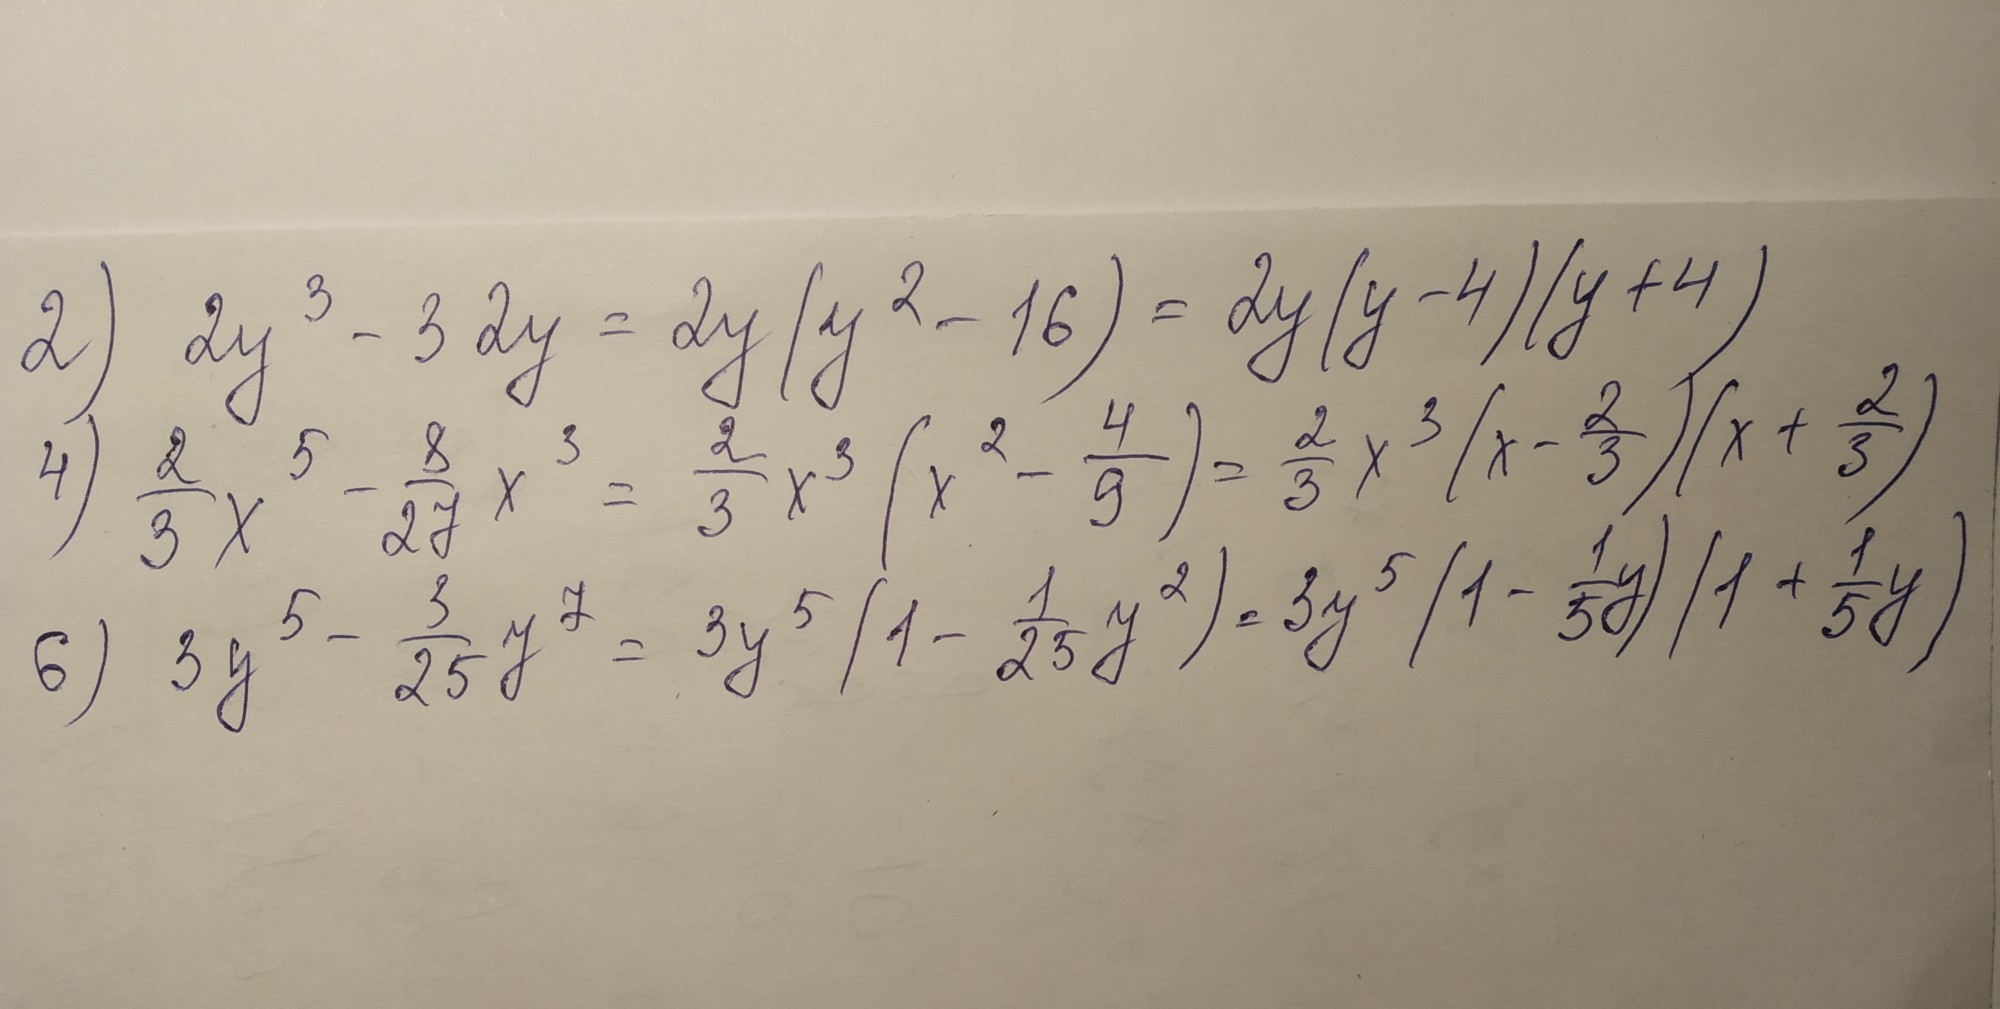 2) 2y³ - 32y = 2y(y² - 16) = 2y(y - 4)(y + 4)
4) 2/3 x⁵ - 8/27 x³ = 2/3 x³ (x² - 4/9) = 2/3 x³ (x - 2/3)(x + 2/3)
6) 3y⁵ - 3/25 y⁷ = 3y⁵ (1 - 1/25 y²) = 3y⁵ (1 - 1/5 y)(1 + 1/5 y)